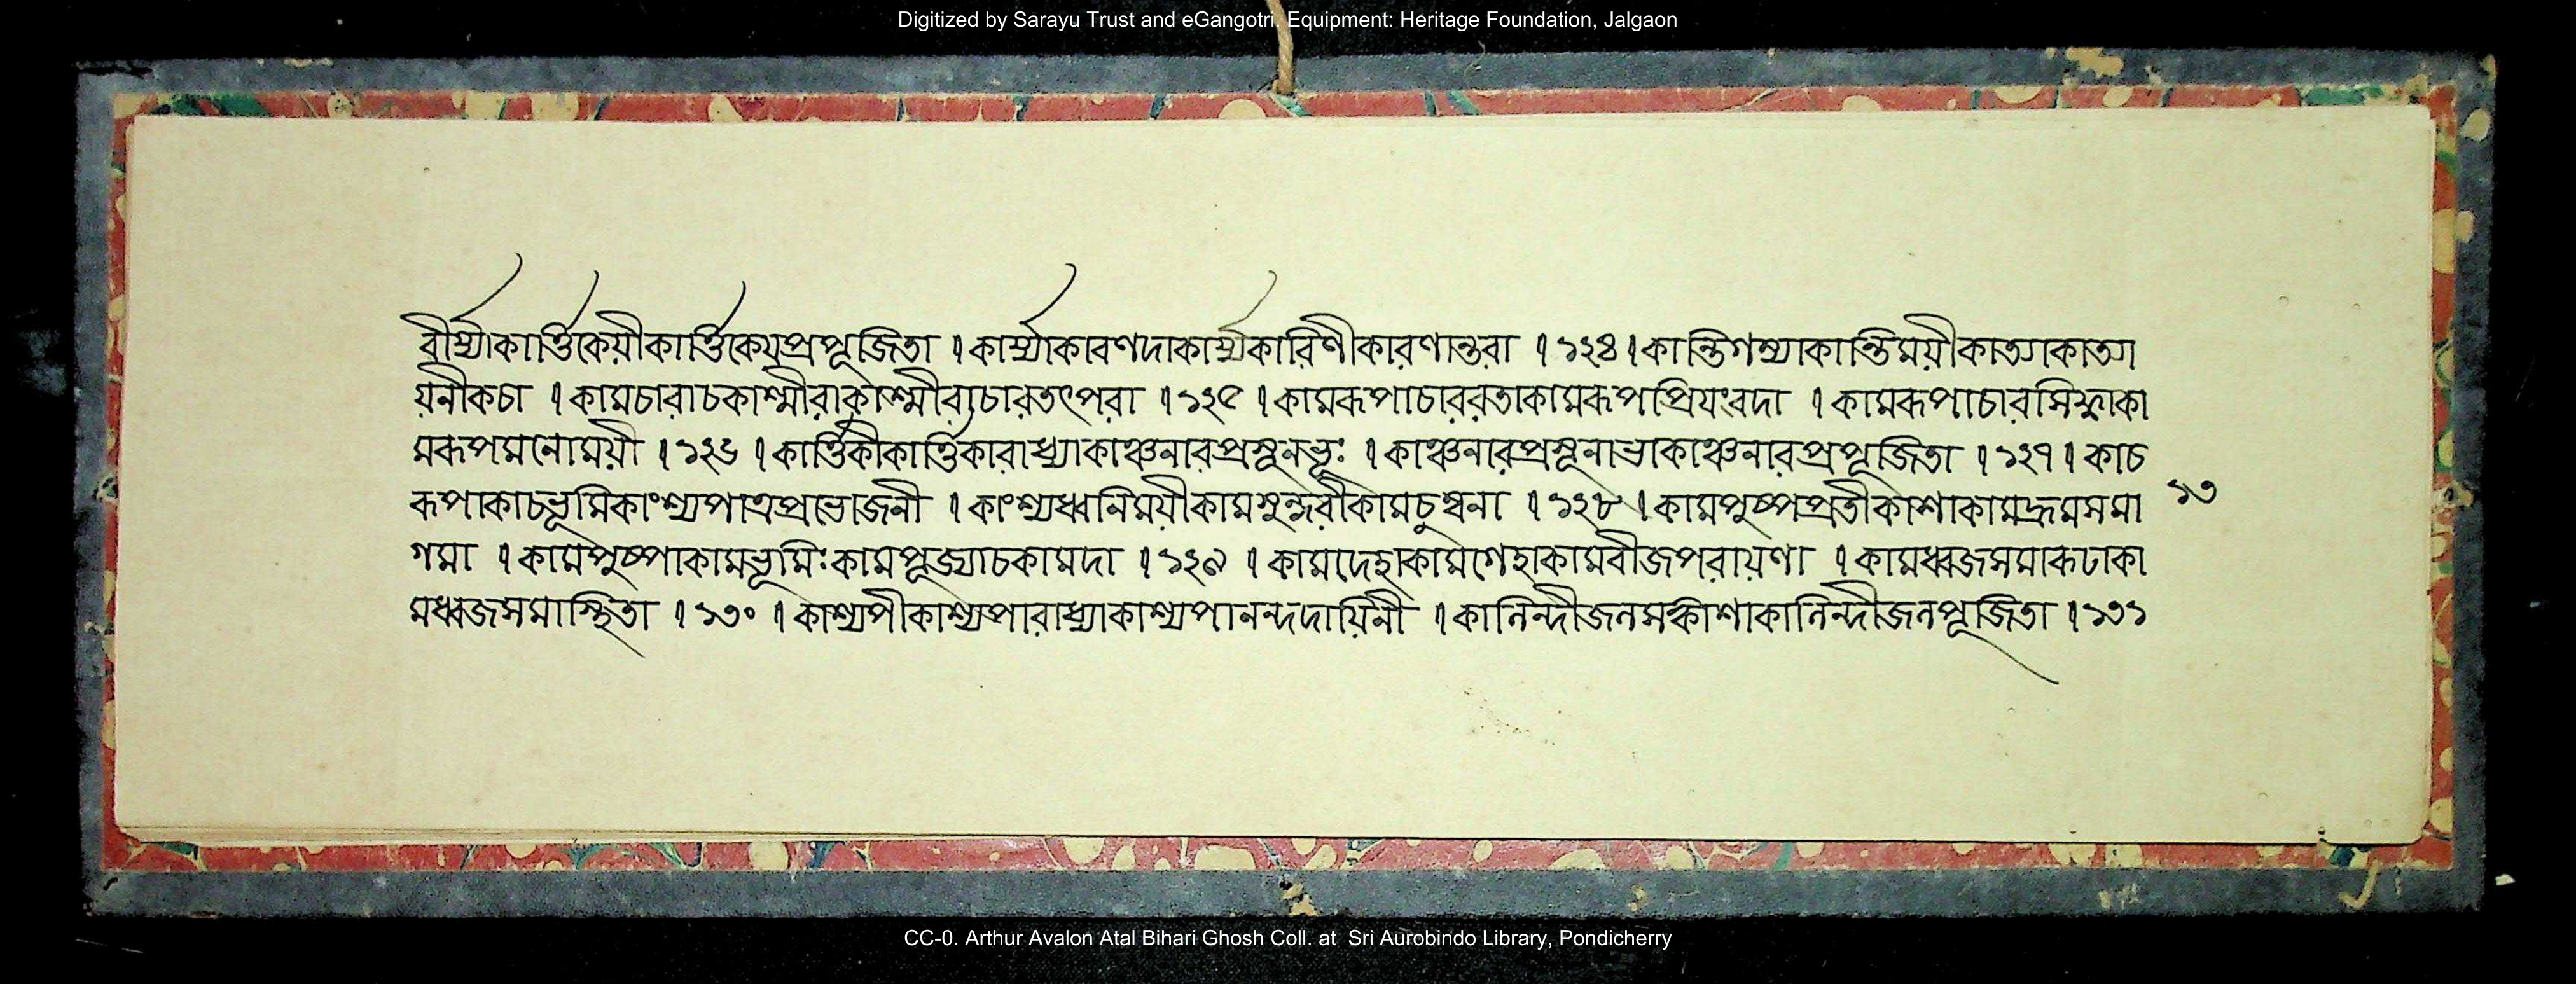 Digitized by Sarayu Trust and eGangotri. Equipment: Heritage Foundation, Jalgaon
বীর্য্যাকার্ত্তিকেয়ীকার্ত্তিকেয়প্রপূজিতা । কার্য্যাকারণদাকার্য্যকারিণীকারণান্তরা । ১২৪ । কান্তিগম্যাকান্তিময়ীকাত্যাকাত্যা
য়নীকচা । কামচারাচকাশ্মীরাকাশ্মীর্যচারতৎপরা । ১২৫ । কামরূপাচাররতাকামরূপপ্রিয়ংবদা । কামরূপাচারসিদ্ধাকা
মরূপমনোময়ী । ১২৬ । কার্ত্তিকীকার্ত্তিকারাধ্যাকাঞ্চনারপ্রসূনভূঃ । কাঞ্চনারপ্রসূনাভাকাঞ্চনারপ্রপূজিতা । ১২৭ । কাচ
রূপাকাচভূমিকাংশ্যপাত্রপ্রভোজনী । কাংশ্যধ্বনিময়ীকামসুন্দরীকামচুম্বনা । ১২৮ । কামপুষ্পপ্রতীকাশাকামদ্রুমসমা
১৩
গমা । কামপুষ্পাকামভূমিঃকামপূজ্যাচকামদা । ১২৯ । কামদেহাকামগেহাকামবীজপরায়ণা । কামধ্বজসমারূঢাকা
মধ্বজসমাস্থিতা । ১৩০ । কাশ্যপীকাশ্যপারাধ্যাকাশ্যপানন্দদায়িনী । কালিন্দীজলসঙ্কাশাকালিন্দীজলপূজিতা । ১৩১
CC-0. Arthur Avalon Atal Bihari Ghosh Coll. at Sri Aurobindo Library, Pondicherry